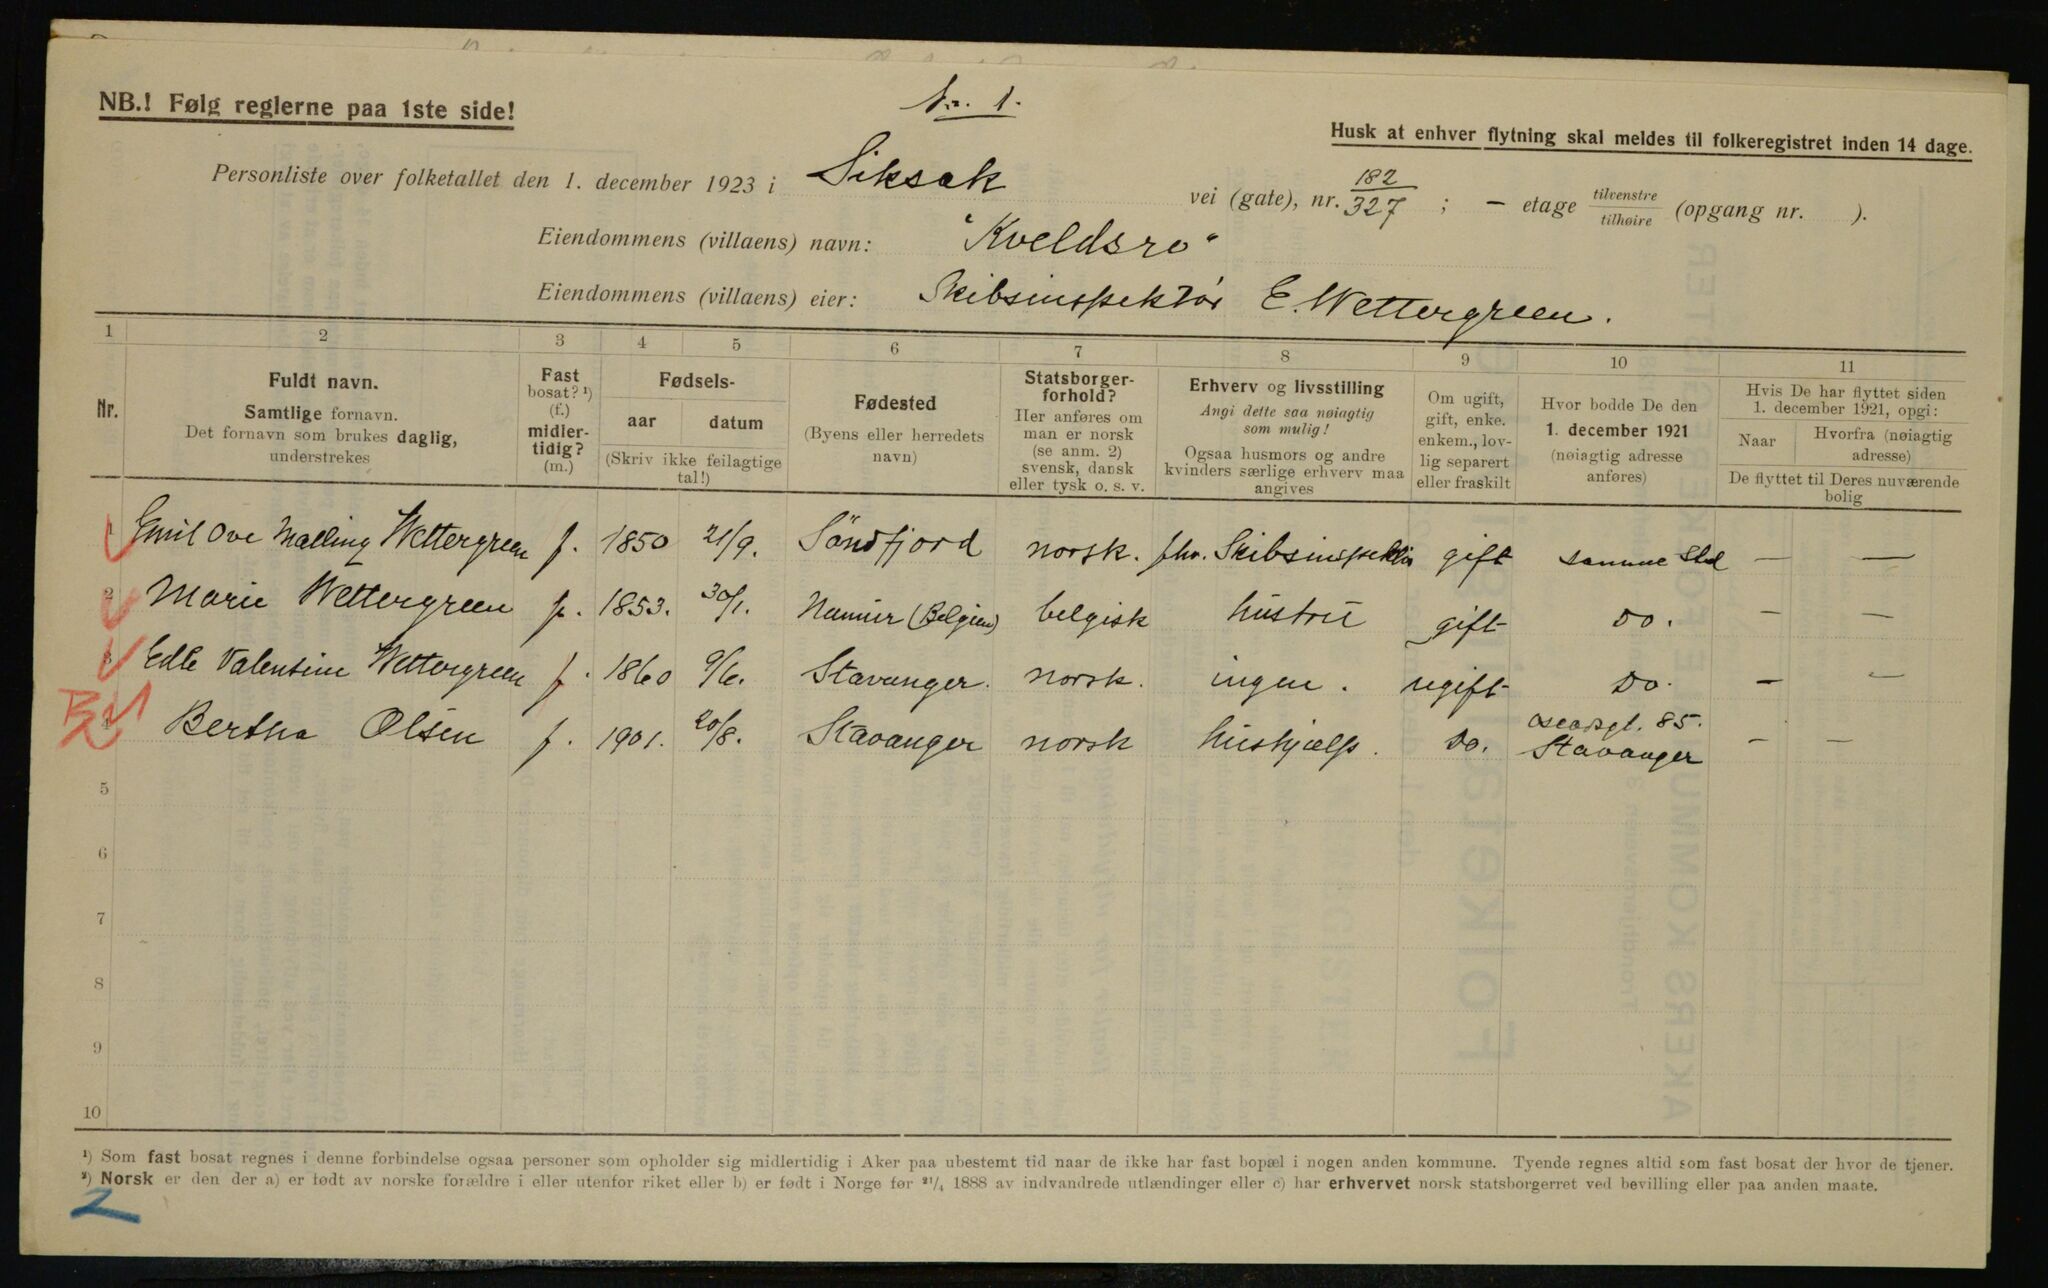 NB.! Følg reglerne paa 1ste side!
No. 1.
Husk at enhver flytning skal meldes til folkeregistret inden 14 dage.
Personliste over folketallet den 1. december 1923 i Siksak vei (gate), nr. 182/327 ; – etage tilvenstre/tilhøire (opgang nr. ).
Eiendommens (villaens) navn: "Kveldsro"
Eiendommens (villaens) eier: Skibsinspektør E. Wettergreen.
1 2 3 4 5 6 7 8 9 10 11
Nr.
Fuldt navn.
Samtlige fornavn.
Det fornavn som brukes daglig,
understrekes
Fast
bosat? ¹)
(f.)
midler-
tidig?
(m.)
Fødsels-
aar datum
(Skriv ikke feilagtige
tal!)
Fødested
(Byens eller herredets
navn)
Statsborger-
forhold?
Her anføres om
man er norsk
(se anm. 2)
svensk, dansk
eller tysk o. s. v.
Erhverv og livsstilling
Angi dette saa nøiagtig
som mulig!
Ogsaa husmors og andre
kvinders særlige erhverv maa
angives
Om ugift,
gift, enke.
enkem., lov-
lig separert
eller fraskilt
Hvor bodde De den
1. december 1921
(nøiagtig adresse
anføres)
Hvis De har flyttet siden
1. december 1921, opgi:
Naar
Hvorfra (nøiagtig
adresse)
De flyttet til Deres nuværende
bolig
1 Emil Ove Malling Wettergreen f. 1850 21/9. Söndfjord norsk. fhv. Skibsinspektör gift samme Sted — —
2 Marie Wettergreen f. 1853. 30/1. Namur (Belgien) belgisk hustru gift Do. – —
3 Edle Valentine Wettergreen f. 1860 9/6. Stavanger. norsk. ingen. ugift Do. – –
4 Bertha Olsen f. 1901. 20/8. Stavanger norsk hushjælp. Do. 85. Stavanger – —
5
6
7
8
9
10
¹) Som fast bosat regnes i denne forbindelse ogsaa personer som opholder sig midlertidig i Aker paa ubestemt tid naar de ikke har fast bopæl i nogen anden kommune. Tyende regnes altid som fast bosat der hvor de tjener.
²) Norsk er den der a) er født av norske forældre i eller utenfor riket eller b) er født i Norge før 21/4 1888 av indvandrede utlændinger eller c) har erhvervet norsk statsborgerret ved bevilling eller paa anden maate.
2